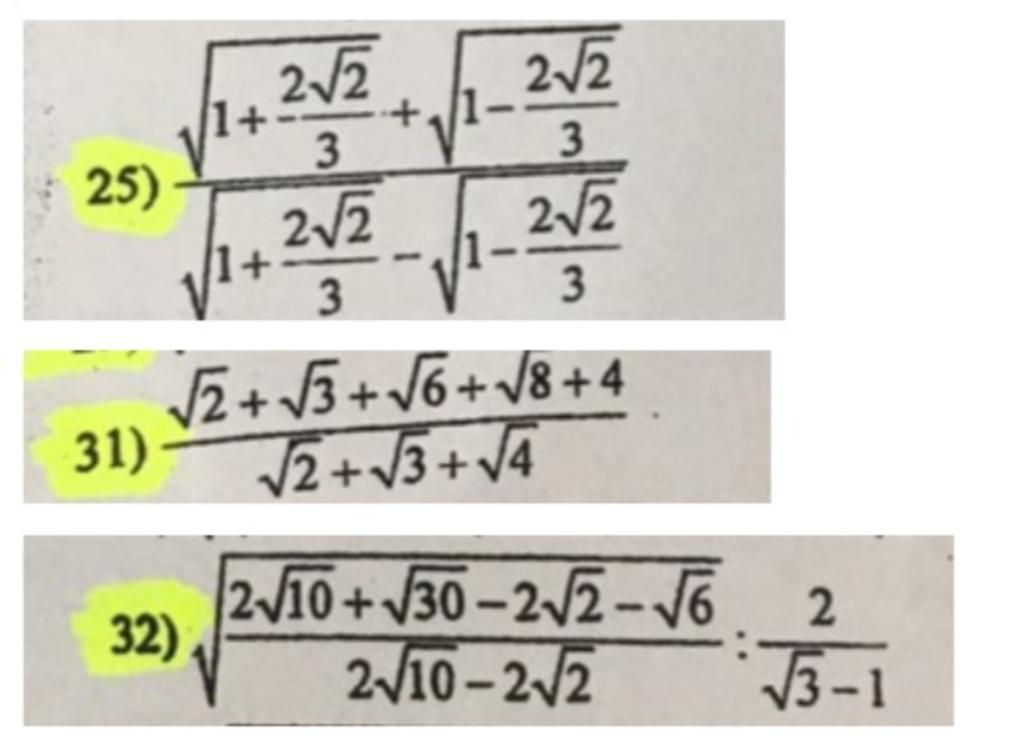 25) \frac{\sqrt{1+\frac{2\sqrt{2}}{3}}+\sqrt{1-\frac{2\sqrt{2}}{3}}}{\sqrt{1+\frac{2\sqrt{2}}{3}}-\sqrt{1-\frac{2\sqrt{2}}{3}}}
31) \frac{\sqrt{2}+\sqrt{3}+\sqrt{6}+\sqrt{8}+4}{\sqrt{2}+\sqrt{3}+\sqrt{4}}
32) \sqrt{\frac{2\sqrt{10}+\sqrt{30}-2\sqrt{2}-\sqrt{6}}{2\sqrt{10}-2\sqrt{2}}}:\frac{2}{\sqrt{3}-1}